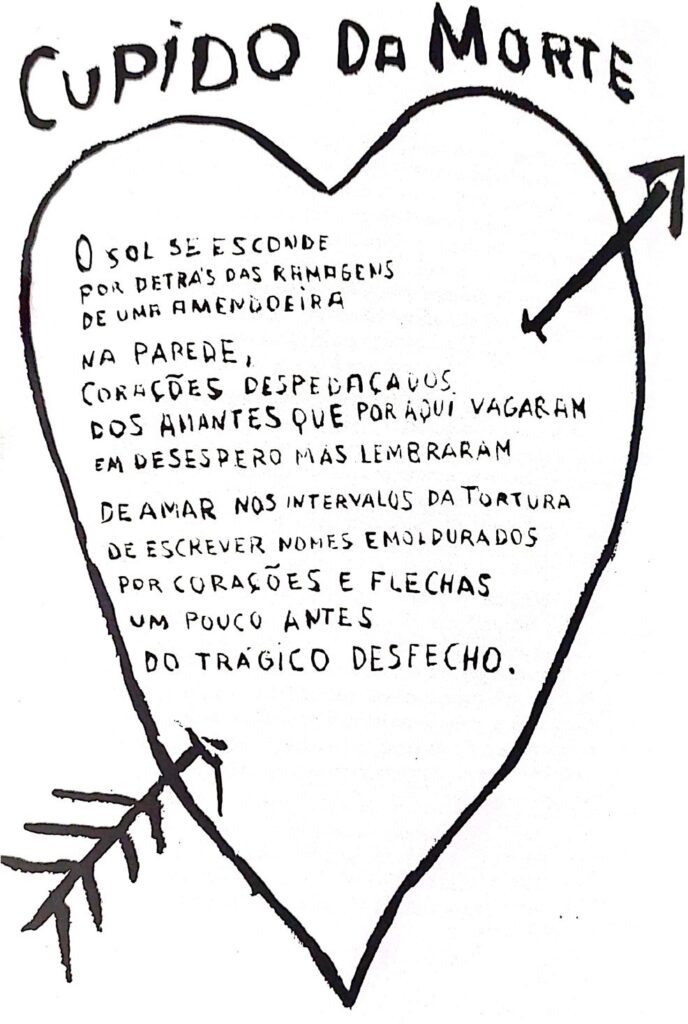 CUPIDO DA MORTE
O SOL SE ESCONDE
POR DETRÁS DAS RAMAGENS
DE UMA AMENDOEIRA
NA PAREDE,
CORAÇÕES DESPEDAÇADOS
DOS AMANTES QUE POR AQUI VAGARAM
EM DESESPERO MAS LEMBRARAM
DE AMAR NOS INTERVALOS DA TORTURA
DE ESCREVER NOMES EMOLDURADOS
POR CORAÇÕES E FLECHAS
UM POUCO ANTES
DO TRÁGICO DESFECHO.